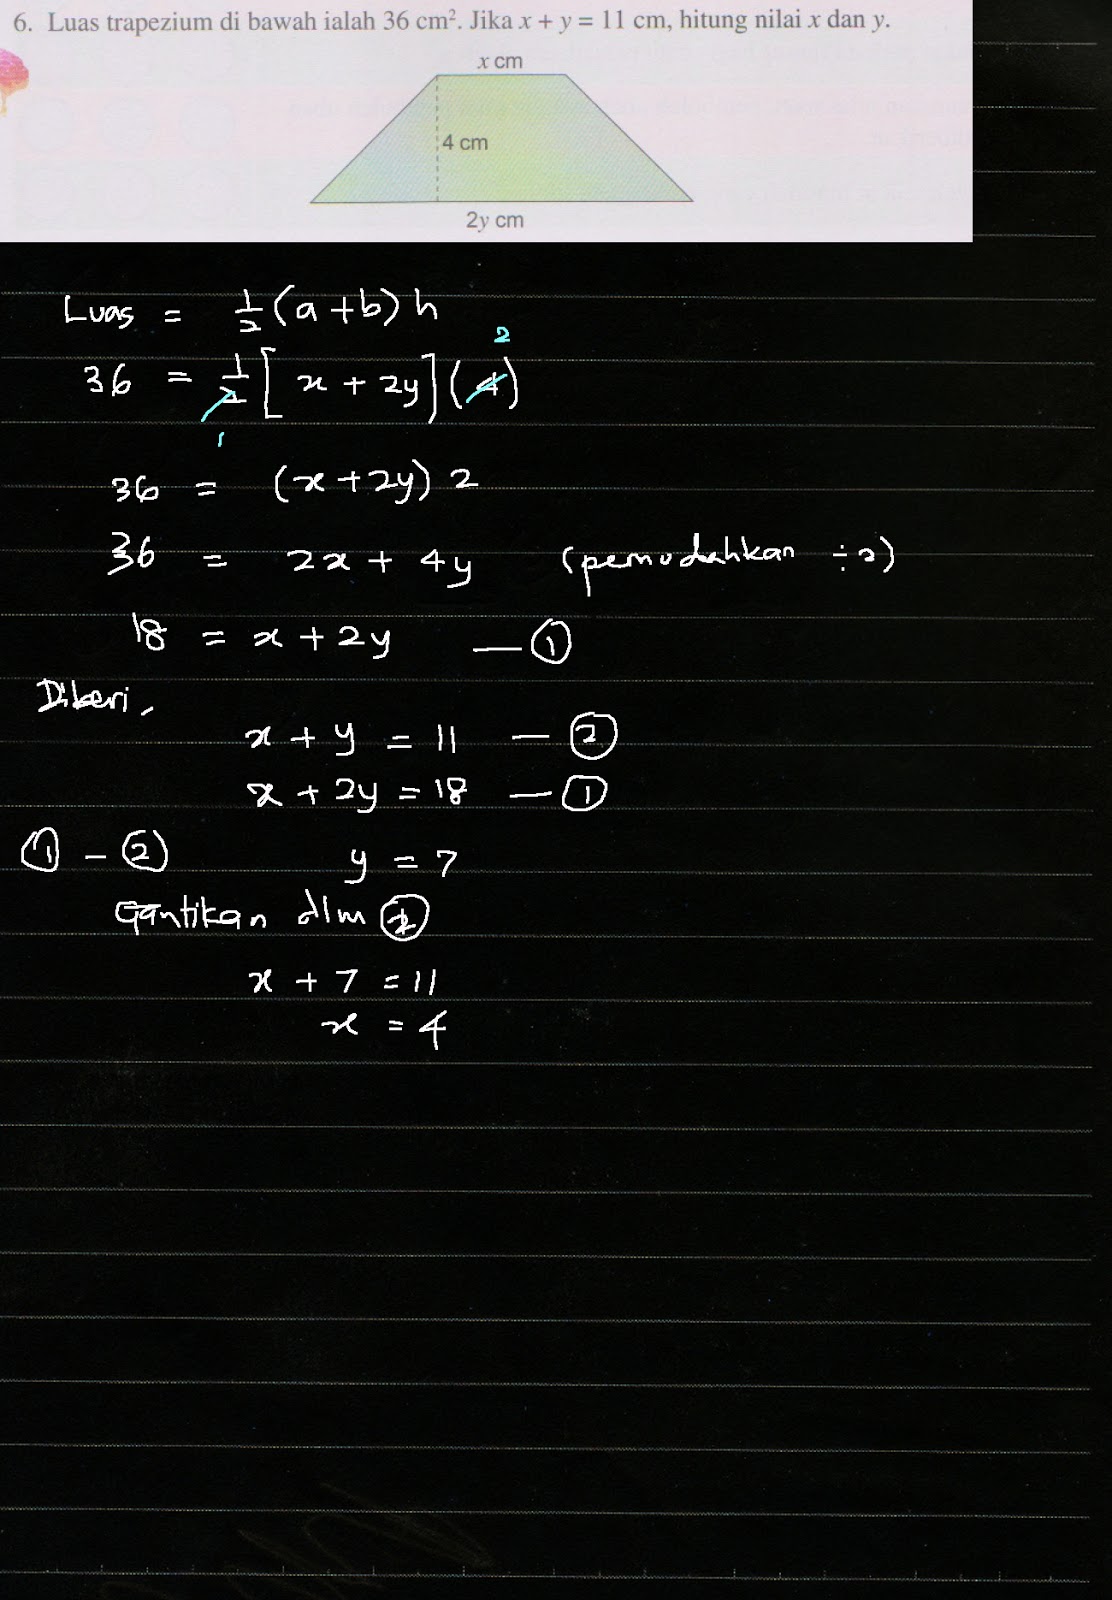 6. Luas trapezium di bawah ialah 36 cm². Jika x + y = 11 cm, hitung nilai x dan y.
x cm
4 cm
2y cm
Luas = 1/2 (a + b) h
2
36 = 1/2 [ x + 2y ] (4)
1
36 = (x + 2y) 2
36 = 2x + 4y (pemudahkan ÷2)
18 = x + 2y — ①
Diberi,
x + y = 11 — ②
x + 2y = 18 — ①
① - ② y = 7
Gantikan dlm ②
x + 7 = 11
x = 4